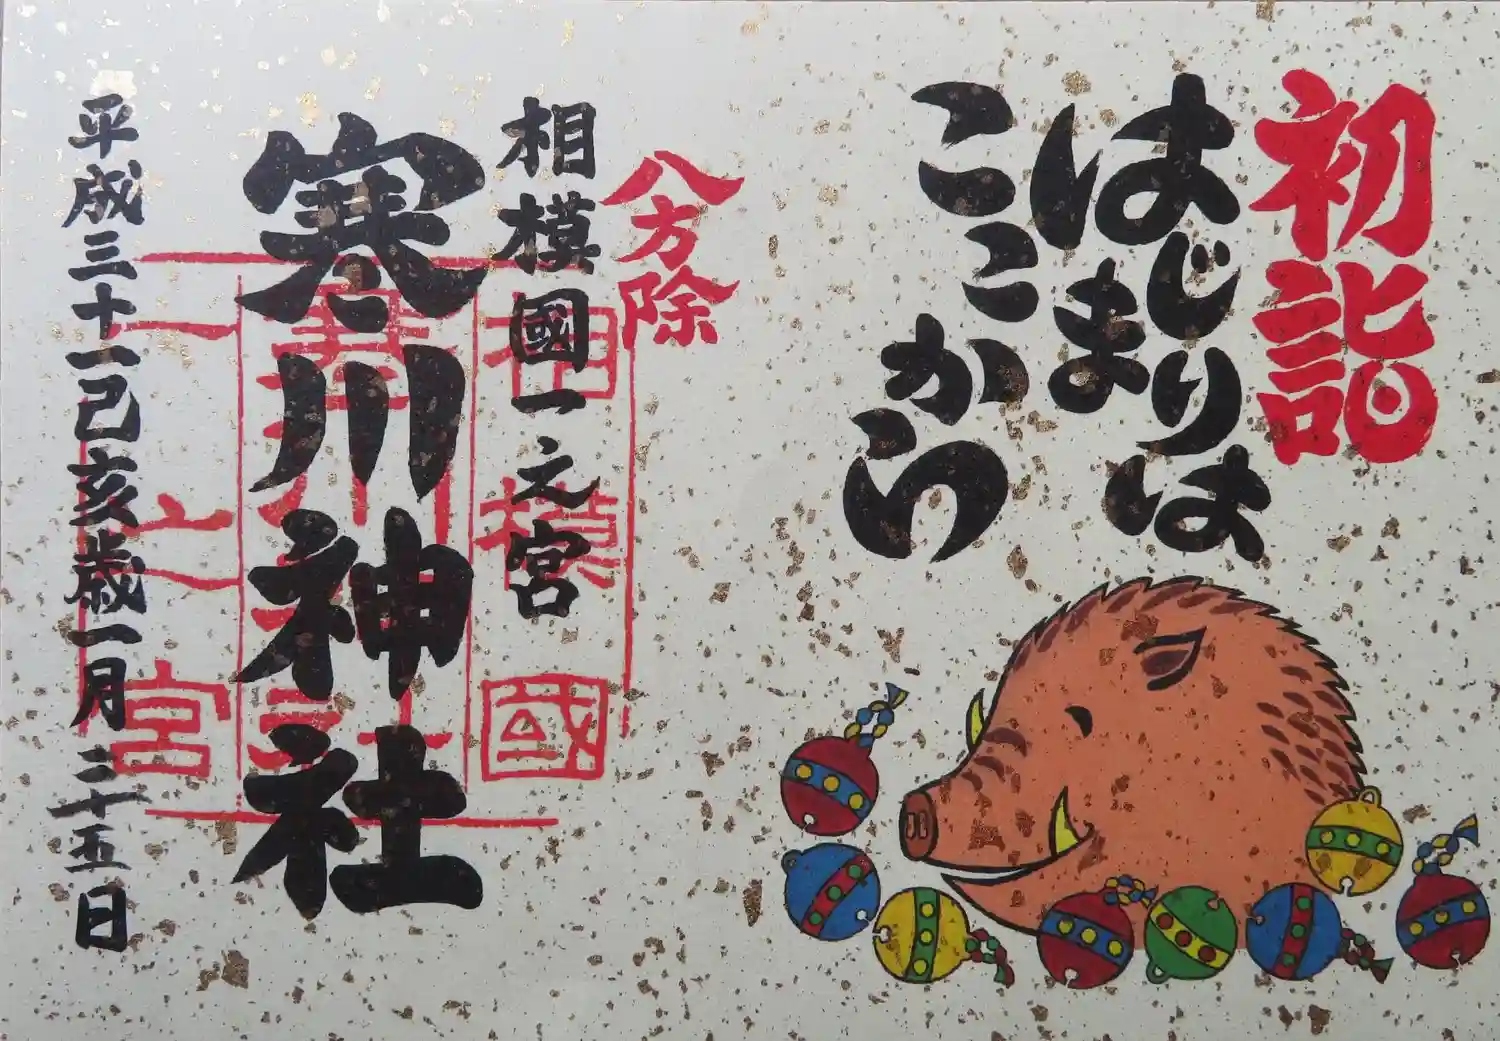 初詣
はじまりは
はじまりは
ここから
八方除
相模國一之宮
寒川神社
平成三十一己亥歳一月二十五日
相模國
寒川神社
一之宮